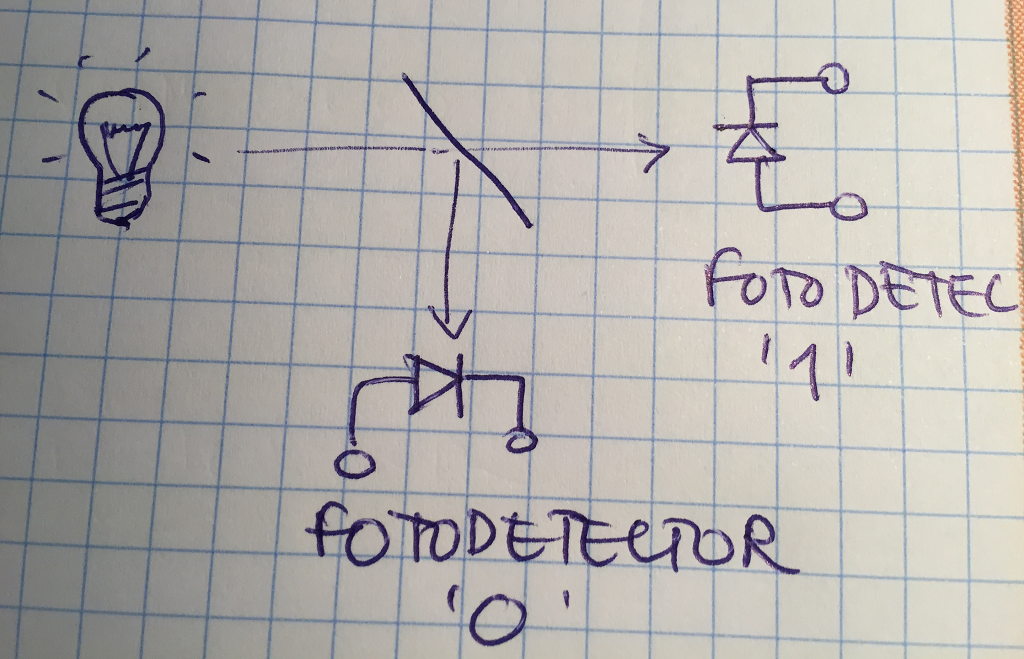 FOTO DETEC
'1'
FOTODETECTOR
'0'